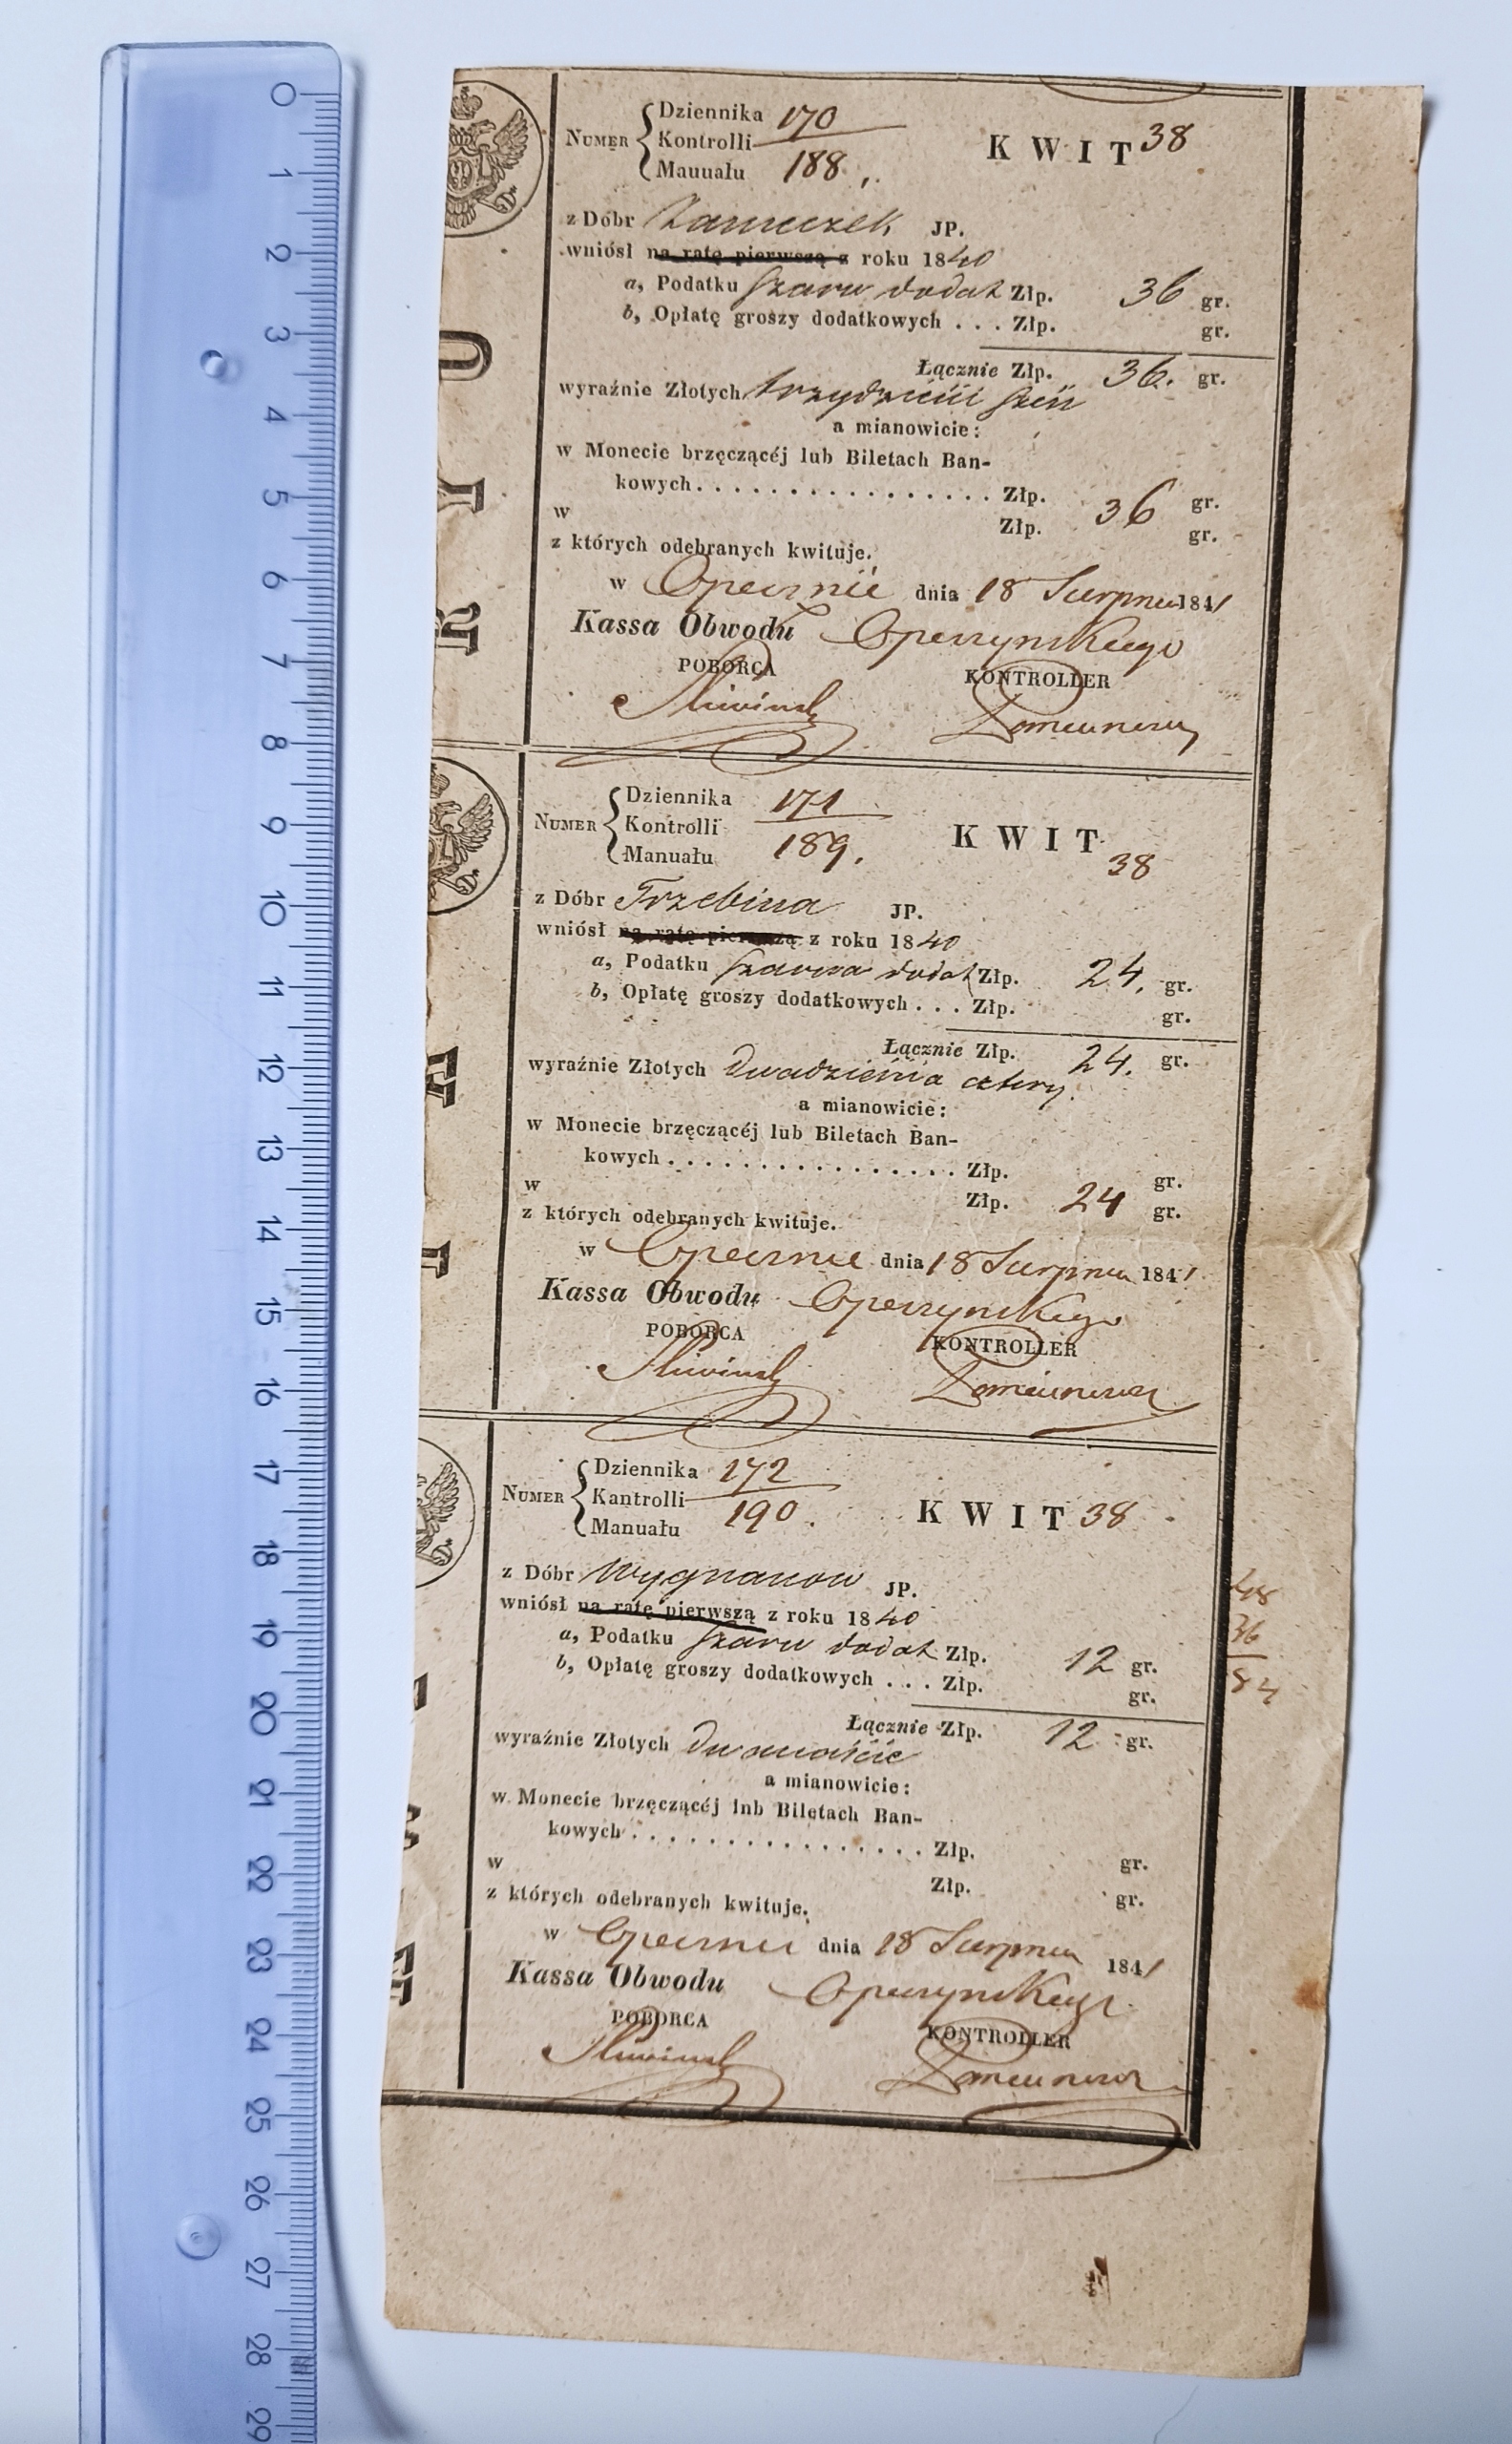 Dziennika 170
NUMER Kontrolli
Mauuału 188
KWIT 38
z Dóbr JP.
wniósł na ratę pierwszą z roku 1840
a, Podatku szarw dodat Złp. 36 gr.
b, Opłatę groszy dodatkowych . . . Złp. gr.
Łącznie Złp. 36. gr.
wyraźnie Złotych trzydzieści sześć
a mianowicie:
w Monecie brzęczącéj lub Biletach Ban-
kowych. . . . . . . . . . . . . . . . Złp. gr.
w Złp. 36 gr.
z których odebranych kwituje.
w Opocznie dnia 18 Sierpnia 1841
Kassa Obwodu Opoczynskiego
POBORCA KONTROLLER
Sliwinski
Dziennika 171
NUMER Kontrolli
Manuału 189.
KWIT
38
z Dóbr Trzebina JP.
wniósł na ratę pierwszą z roku 1840
a, Podatku dodat Złp. 24. gr.
b, Opłatę groszy dodatkowych . . . Złp. gr.
Łącznie Złp. 24. gr.
wyraźnie Złotych Dwadzieścia cztery.
a mianowicie:
w Monecie brzęczącéj lub Biletach Ban-
kowych . . . . . . . . . . . . . . . . Złp. gr.
w Złp. 24 gr.
z których odebranych kwituje.
w Opocznie dnia 18 Sierpnia 1841
Kassa Obwodu Opoczynskiego
POBORCA KONTROLLER
Sliwinski
Dziennika 172
NUMER Kantrolli
Manuału 190.
KWIT 38
z Dóbr Wygnanow JP.
wniósł na ratę pierwszą z roku 1840
a, Podatku szarw dodat Złp. 12 gr.
b, Opłatę groszy dodatkowych . . . Złp. gr.
Łącznie Złp. 12 gr.
wyraźnie Złotych Dwanaście
a mianowicie:
w Monecie brzęczącéj lnb Biletach Ban-
kowych . . . . . . . . . . . . . . . . Złp. gr.
w Złp. gr.
z których odebranych kwituje.
w Opocznie dnia 18 Sierpnia 1841
Kassa Obwodu Opoczynskiego
POBORCA KONTROLLER
Sliwinski
48
36
84
0
1
2
3
4
5
6
7
8
9
10
11
12
13
14
15
16
17
18
19
20
21
22
23
24
25
26
27
28
29